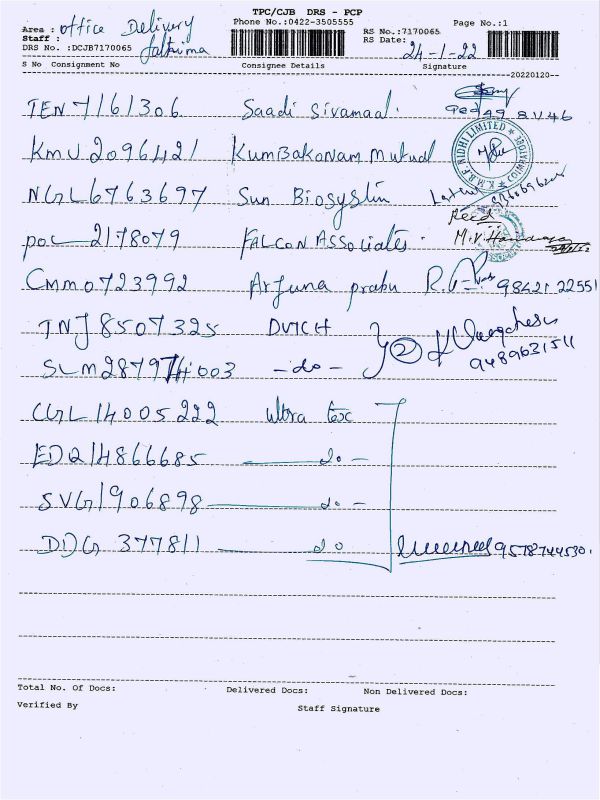 TPC/CJB DRS - PCP
Area : office Delivery
Phone No.:0422-3505555
Page No.:1
Staff :
RS No.:7170065
DRS No. :DCJB7170065
RS Date: 24-1-22
S No Consignment No Consignee Details Signature
20220120
TEN 7161306 Saadi Sivamaal.
KMU 2096421 Kumbakonam Mutual
K.M.B.F RIDHI LIMITED COIMBATORE
NGL 6763697 Sun Biosystin
POC 2178079 FALCON ASSOCIATES. Recd
CMM0723992 Arjuna prabu 98421 22551
TNJ 8507325 DUTCH
2
9489631511
SLM 287974003 - do -
CGL 14005222 Ultra tex
EDQ14866685 do -
SVG1906898 do -
DDG 377811 do 9578744530.
Total No. Of Docs: Delivered Docs: Non Delivered Docs:
Verified By Staff Signature